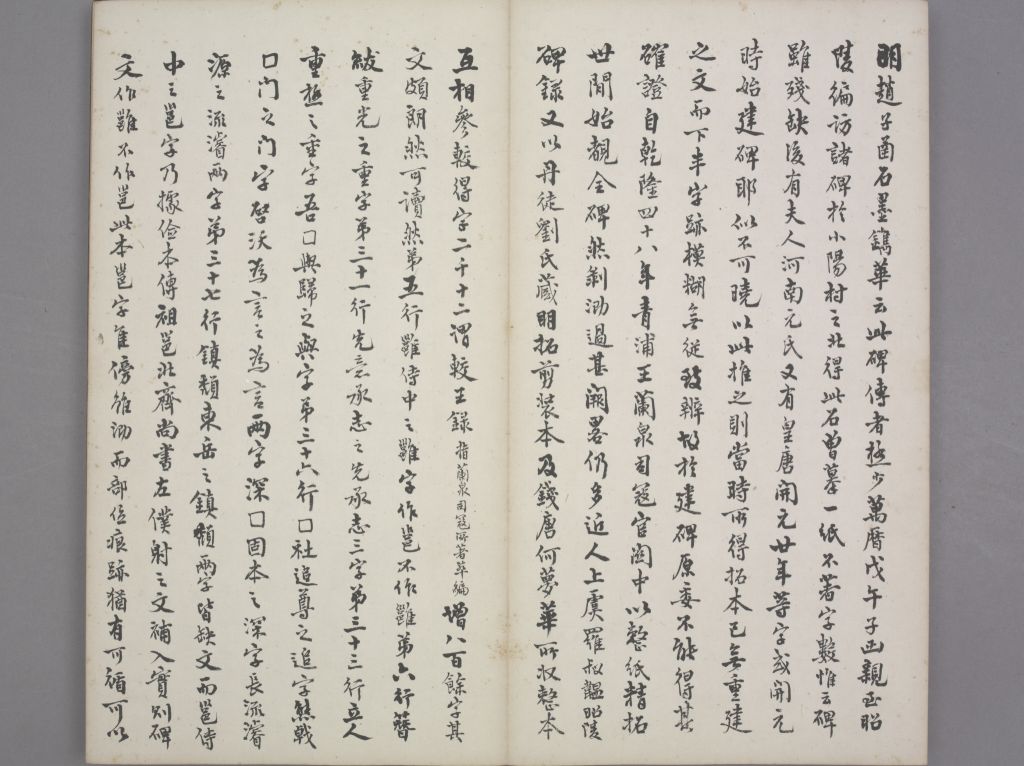 明趙子函石墨鐫華云此碑傳者極少萬曆戊午子函親至昭
陵編訪諸碑於小陽村之北得此石曾摹一紙不著字數惟云碑
雖殘缺後有夫人河南元氏又有皇唐開元廿年等字或開元
時始建碑耶似不可曉以此推之則當時所得拓本已無重建
之文而下半字跡模糊無從致辧故於建碑原委不能得其
確證自乾隆四十八年青浦王蘭泉司寇官關中以整紙精拓
世間始覩全碑然剝泐過甚闕畧仍多近人上虞羅叔韞昭陵
碑錄又以丹徒劉氏藏明拓剪裝本及錢唐何夢華所収整本
互相參較得字二千十二謂較王錄指蘭泉司寇所著萃編增八百餘字其
文頗朗然可讀然第五行雖侍中之雖字作邕不作雖第六行簪
紱重光之重字第三十一行先意承志之先承志三字第三十三行立人
重極之重字吾口與歸之與字第三十六行口社追尊之追字熊戟
口门之门字啓沃為言之為言兩字深口固本之深字長流濬
源之流濬兩字第三十七行鎮頹東岳之鎮頹兩字皆缺文而邕侍
中之邕字乃據儉本傳祖邕北齊尚書左僕射之文補入實則碑
文作雖不作邕此本邕字隹傍雖泐而部位痕跡猶有可循可以